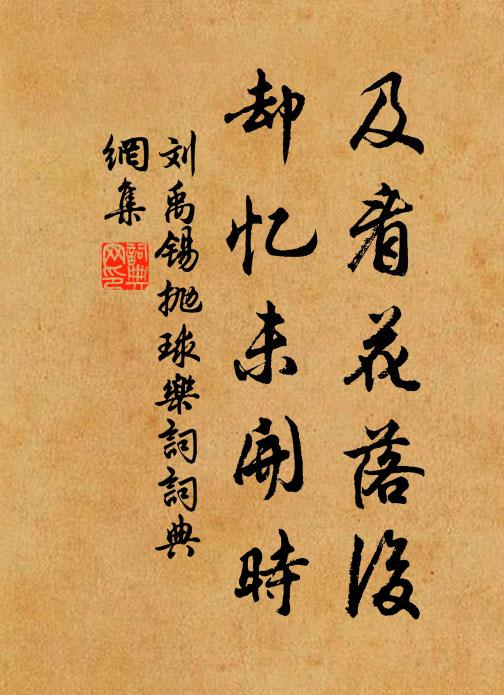 及看花落後
却忆未開時
刘禹锡抛球樂詞詞典
網集
詞典網印